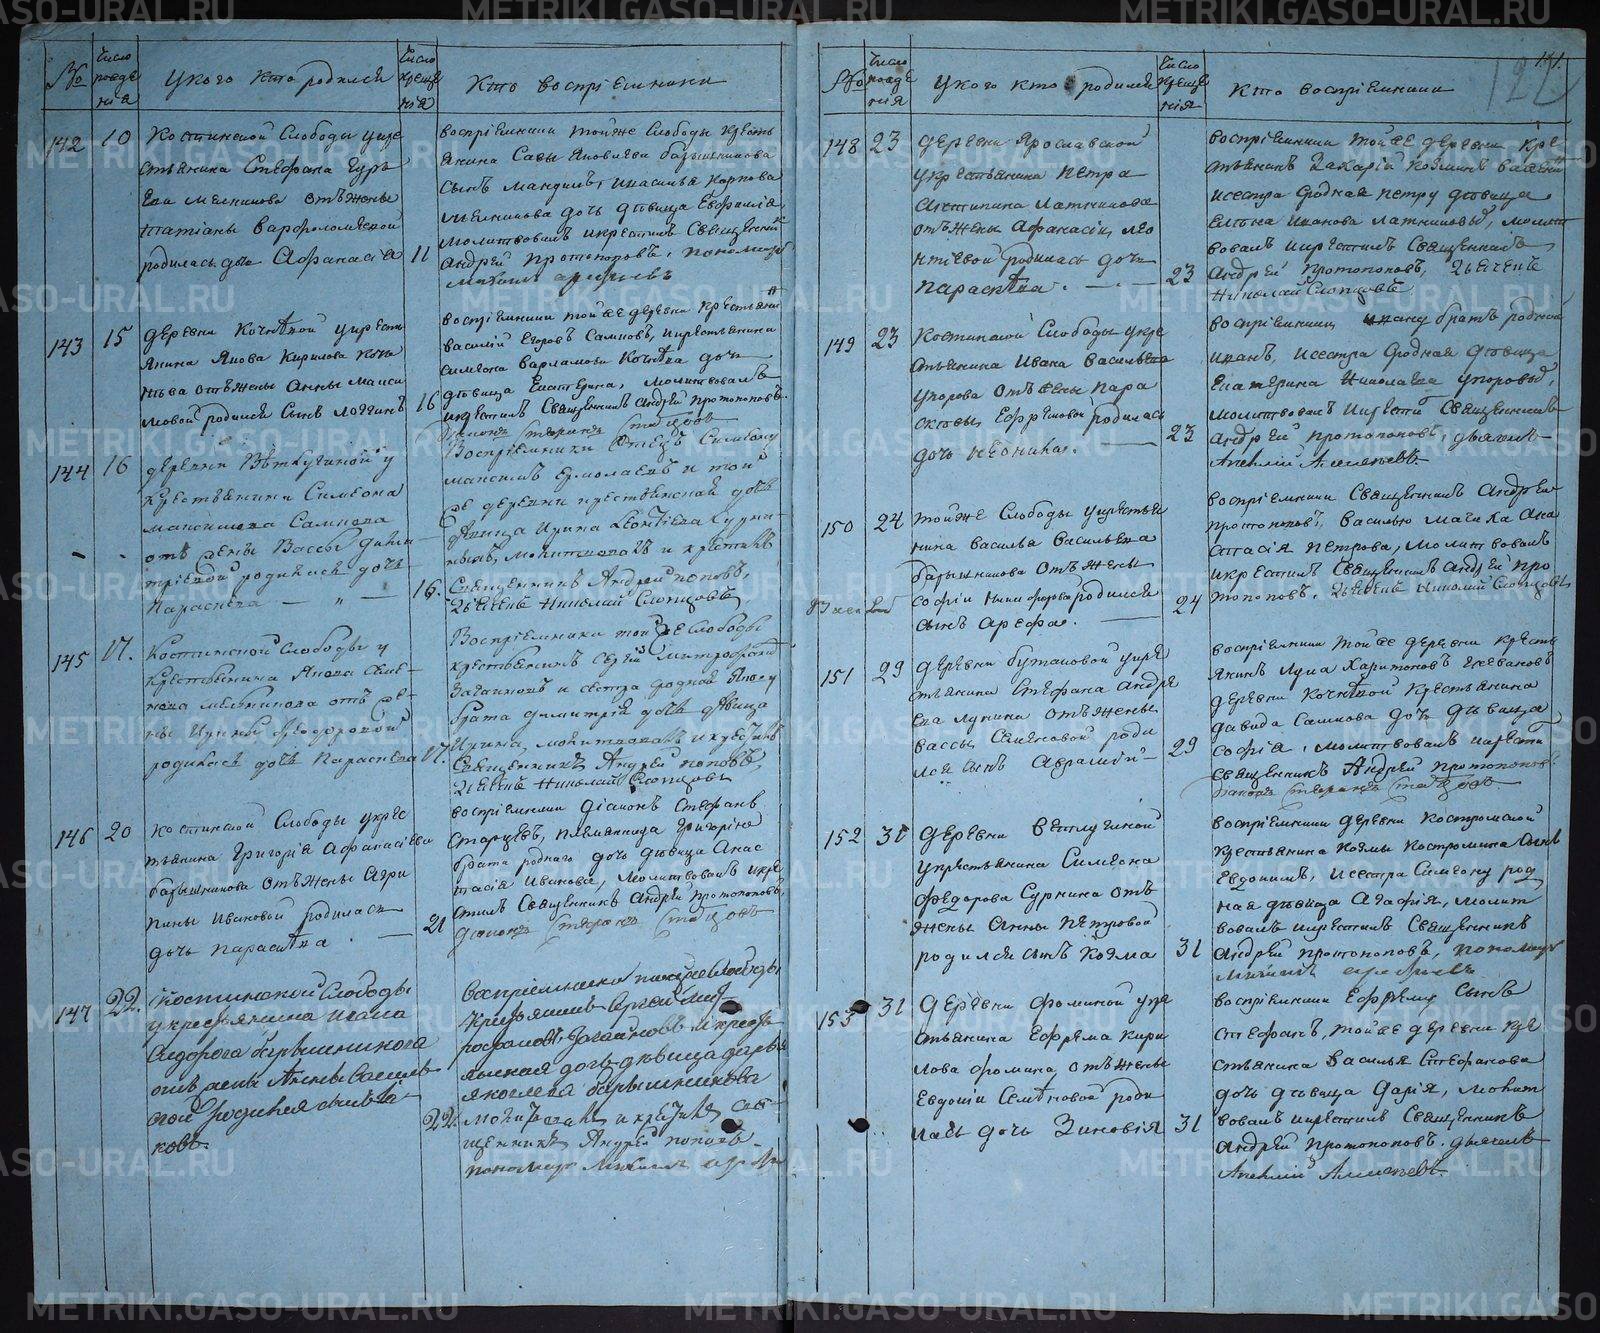 №
число рожде нія
у кого кто родился
число креще нія
кто воспріемники
142
10
Костинской Слободы у кре
стьянина Стефана Гурь
ева Мелникова отъ жены
татіаны варфоломѣевой
родилась дочь Афанасія
11
воспріемники тойже Слободы кресть
янина Савы Яковлева барышникова
сынъ и василья Карпова
мѣлникова дочь дѣвица Евфимія
молитвовалъ и крестилъ Священникъ
Андрей Протопоповъ, пономарь
143
15
деревни Кочнѣвой у кресть
янина Якова Кирилова Кочн
нѣва отъ жены Анны макси
мовой родился сынъ Логгинъ
16
воспріемники тойже деревни крестьянинъ
василій Егоровъ Самковъ, и крестьянина
симеона варламова Кочнѣва дочь
дѣвица Екатерина, молитвовалъ
и крестилъ Священникъ Андрей Протопоповъ.
діаконъ Стефанъ Старцовъ
144
16
деревни Вѣтлугиной у
крестьянина Симеона
максимова Самкова
отъ жены Вассы дими
тріевой родилась дочь
Параскева — „ —
16.
Воспріемники отецъ Симеону
максимъ Ермолаевъ и той
же деревни крестьянская дочь
дѣвица Ирина Леонтіева Сурни
ныхъ, молитвовалъ и крестилъ
Священникъ Андрей поповъ,
дьячекъ Николай Слопцовъ
145
17.
Костинской Слободы у
крестьянина Якова Семе
нова мелникова отъ же
ны Ирины феодоровой
родилась дочь Параскева
17.
Воспріемники той же Слободы
крестьянинъ Сергей митрофановъ
Загайновъ и сестра родная Якову
брата димитрія дочь дѣвица
Ирина, молитвовалъ и крестилъ
Священникъ Андрей поповъ,
дьячекъ Николай Слопцовъ
146
20
Костинской Слободы у крес
тьянина Григорія Афанасіева
барышникова отъ жены Агри
пины Ивановой родилась
дочь параскѣва
21
воспріемники діаконъ Стефанъ
Старцевъ, племянница Григорію
брата роднаго дочь дѣвица Анас
тасія Иванова, молитвовалъ и кре
стилъ Священникъ Андрей Протопоповъ,
діаконъ Стефанъ Старцовъ
147
22.
Костинской Слободы
у крестьянина Ивана
Сидорова барышникова
отъ жены Анны Василь
евой родился сынъ Іа
ковъ.
22.
Воспріемники тойже Слободы
крестьянинъ Сергей Мит
рофановъ Загайновъ и кресть
янская дочь дѣвица дарья
яковлева барышникова
молитвовалъ и крестилъ свя
щенникъ Андрей поповъ
пономарь Михаилъ
№
число рожде нія
у кого кто родился
число креще нія
кто воспріемники
122
148
23
деревни Ярославской
у крестьянина Петра
Антипина Латникова
отъ жены Афанасіи лео
нтіевой родилась дочь
Параскѣва.
23
воспріемники тойже деревни кре
стьянинъ Захарій Козминъ
и сестра родная петру дѣвица
Елена Иванова латниковы, молит
вовалъ и крестилъ Священникъ
Андрей Протопоповъ, дьячекъ
Николай Слопцовъ
149
23
Костинской Слободы у кре
стьянина Ивана Васильева
упорова отъ жены пара
скевы Ефремовой родилась
дочь неонила.
23
воспріемники Ивану братъ родной
иванъ, и сестра родная дѣвица
Екатерина Николаева упоровы,
молитвовалъ и крестилъ Священникъ
Андрей Протопоповъ, дьячекъ
Алексѣй Алексѣевъ
150
24
тойже Слободы у крестья
нина василья васильева
барышникова отъ жены
софіи родился
сынъ Арефа.
24
воспріемники Священникъ Андрей
протопоповъ, василью мачиха Ана
стасія петрова, молитвовалъ
и крестилъ Священникъ Андрей Про
топоповъ. дьячекъ Николай Слопцовъ
151
29
деревни бутаковой у кре
стьянина Стефана Андре
ева лукина отъ жены
вассы Семеновой роди
лся сынъ Авраамій
29
воспріемники тойже деревни кресть
янинъ лука Харитоновъ
деревни Кочнѣвой крестьянина
давида Самкова дочь дѣвица
софія, молитвовалъ и крестилъ
Священникъ Андрей Протопоповъ
діаконъ Стефанъ Старцовъ
152
31
деревни ветлугиной
у крестьянина Симеона
федорова Сурнина отъ
жены Анны Петровой
родился сынъ Козма
31
воспріемники деревни Костромской
крестьянина Козмы Костромина сынъ
Евдокимъ, и сестра Симеону род
ная дѣвица Агафія, молит
вовалъ и крестилъ Священникъ
Андрей Протопоповъ, пономарь
153
31
деревни Фоминой у кре
стьянина Ефрема Кири
лова фомина, отъ жены
Евдокіи Семѣновой роди
лась дочь Зиновія
31
воспріемники Ефрему сынъ
Стефанъ, тойже деревни кре
стьянина василья Стефанова
дочь дѣвица дарія, молит
вовалъ и крестилъ Священникъ
Андрей Протопоповъ. дьячекъ
Алексѣй Алексѣевъ
METRIKI.GASO-URAL.RU